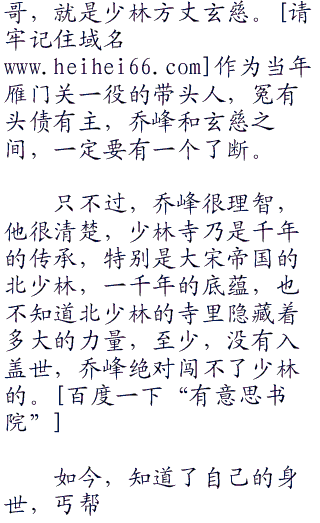 哥，就是少林方丈玄慈。[请
牢记住域名
www.heihei66.com]作为当年
雁门关一役的带头人，冤有
头债有主，乔峰和玄慈之
间，一定要有一个了断。
只不过，乔峰很理智，
他很清楚，少林寺乃是千年
的传承，特别是大宋帝国的
北少林，一千年的底蕴，也
不知道北少林的寺里隐藏着
多大的力量，至少，没有入
盖世，乔峰绝对闯不了少林
的。[百度一下“有意思书
院”]
如今，知道了自己的身
世，丐帮